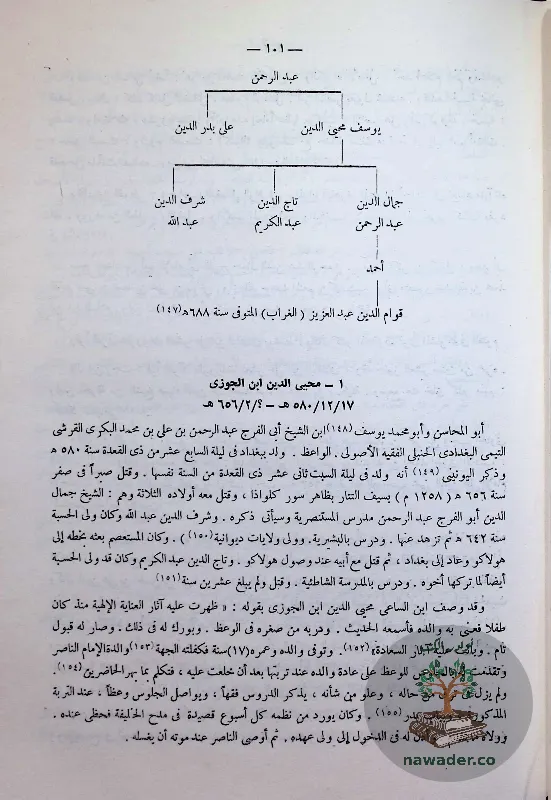 — ١٠١ —
عبد الرحمن
يوسف محيي الدين
علي بدر الدين
جمال الدين
تاج الدين
شرف الدين
عبد الرحمن
عبد الكريم
عبد الله
أحمد
قوام الدين عبد العزيز ( الغراب ) المتوفى سنة ٦٨٨ ه (١٤٧)
١ – محيي الدين ابن الجوزى
٥٨٠/١٢/١٧ هـ – ٦٥٦/٢/؟ هـ
أبو المحاسن وأبو محمد يوسف (١٤٨) ابن الشيخ أبي الفرج عبد الرحمن بن علي بن محمد البكرى القرشي
التيمي البغدادى الحنبلي الفقيه الأصولى . الواعظ . ولد ببغداد في ليلة السابع عشر من ذى القعدة سنة ٥٨٠ ه
وذكر اليونيني (١٤٩) أنه ولد فى ليلة السبت ثاني عشر ذى القعدة من السنة نفسها . وقتل صبراً في صفر
سنة ٦٥٦ ه ( ١٢٥٨ م ) بسيف التتار بظاهر سور كلواذا ، وقتل معه أولاده الثلاثة وهم : الشيخ جمال
الدين أبو الفرج عبد الرحمن مدرس المستنصرية وسيأتى ذكره . وشرف الدين عبد الله وكان ولى الحسبة
سنة ٦٤٢ ه ثم تزهد عنها . ودرس بالبشيرية . وولى ولايات ديوانية (١٥٠) ) . وكان المستعصم بعثه بخطه إلى
هولاكو وعاد إلى بغداد ، ثم قتل مع أبيه عند وصول هولاكو . وتاج الدين عبد الكريم وكان قد ولى الحسبة
أيضاً لما تركها أخوه . ودرس بالمدرسة الشاطئية . وقتل ولم يبلغ عشرين سنة (١٥١)
وقد وصف ابن الساعي محيي الدين ابن الجوزى بقوله : « ظهرت عليه آثار العناية الإلهية منذ كان
طفلا فعني به والده فأسمعه الحديث . ودربه من صغره فى الوعظ . وبورك له فى ذلك . وصار له قبول
تام . وبانت عليه آثار السعادة» (١٥٢). وتوفى والده وعمره (١٧) سنة فكفلته الجهة (١٥٣) والدة الإمام الناصر
وتقدمت للوعظ على عادة والده عند تربتها بعد أن خلعت عليه ، فتكلم بما بهر الحاضرين (١٥٤) .
ولم يزل في حاله ، وعلو من شأنه ، يذكر الدروس فقهاً ، ويواصل الجلوس وعظاً ، عند التربة
المذكورة بدر (١٥٥) . وكان يورد من نظمه كل أسبوع قصيدة فى مدح الخليفة فحظى عنده .
وولاه له فى الدخول إلى ولى عهده . ثم أوصى الناصر عند موته أن يغسله .
نوادر الكتب
nawader.co